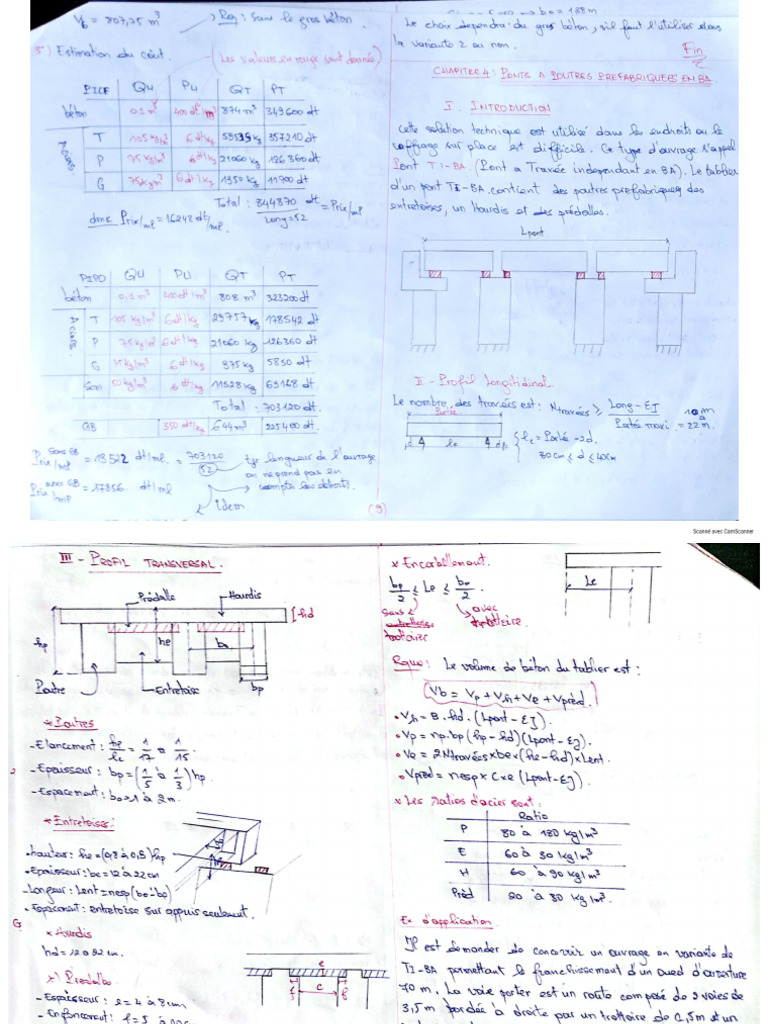 Vb = 807,25 m³ → Rq : Sans le gros béton.
5) Estimation du coût. (Les valeurs en rouge sont données)
PICF QU PU QT PT
béton 0,1 m³ 400 dt/m³ 874 m³ 349600 dt
Aciers
T 105 kg/m³ 6 dt/kg 357210 dt
P 75 kg/m³ 6 dt/kg 21060 kg 126360 dt
G 75 kg/m³ 6 dt/kg 1950 kg 11700 dt
Total : 844870 dt = Prix/ml
Long = 52
donc Prix/ml = 16248 dt/ml.
PIPO QU PU QT PT
béton 0,1 m³ 400 dt/m³ 808 m³ 323200 dt
Aciers
T 105 kg/m³ 6 dt/kg 29757 kg 178542 dt
P 75 kg/d 6 dt/kg 21060 kg 126360 dt
G 75 kg/m³ 6 dt/kg 975 kg 5850 dt
Sem 50 kg/m³ 6 dt/kg 11528 kg 69168 dt
Total : 703120 dt.
GB 350 dt/kg 644 m³ 225400 dt
Prix/ml sans GB = 13522 dt/ml. = 703120/52
tjr longueur de l'ouvrage
on ne prend pas en
compte les débords.
Prix/ml avec GB = 17856 dt/ml
idem
(9)
bo = 188 m
Le choix dependra du gros béton, s'il faut l'utiliser dans
la variante 2 ou non.
Fin
CHAPITRE 4 : PONTS A POUTRES PREFABRIQUEES EN BA.
I. INTRODUCTION
Cette solution technique est utilisé dans les endroits ou le
coffrage sur place est difficile. Ce type d'ouvrage s'appel
Pont TI-BA. (Pont a Travée independant en BA). Le tablier
d'un pont TI-BA contient des poutres prefabriquées des
entretoises, un Hourdis et des prédalles.
Lpont
II - Profil Longitidinal
Le nombre des travées est : Ntravées ≥ (Long - EJ)/(Portée maxi.) 10 m à = 22 m.
Portée
d lc
lc = Portée - 2d.
30 cm ≤ d ≤ 40 cm
Scanné avec CamScanner
III - PROFIL TRANSVERSAL.
Prédalle Hourdis
hd
hp he bo
Poutre Entretoise bp
* Poutres
- Elancement : hp/lc = 1/17 à 1/15
- Epaisseur : bp = (1/5 à 1/3) hp
- Espacement : bo = 1 à 2 m.
* Entretoises :
• hauteur : he = (0,8 à 0,8) hp
• Epaisseur : be = 12 à 22 cm
- Longeur : Lent = nesp (bo - bp)
- Espacement : entretoise sur appuis seulement.
* Hourdis
hd = 12 à 22 cm.
*) Predalle
- Espaisseur : e = 4 à 8 cm
- Enfoncement : f = 5 à
e
c
* Encorbellement.
bp/2 ≤ Le ≤ bo/2.
sans
trottoier
avec
trottoire.
Le
Rque : Le volume de béton du tablier est :
Vb = Vp + Vh + Ve + Vpréd.
• Vh = B . hd . (Lpont - EJ).
• Vp = np . bp (hp - hd) (Lpont - EJ).
• Ve = 2 Ntravées x be x (he - hd) x Lent.
• Vpréd = nesp x c x e (Lpont - EJ).
* Les ratios d'acier sont :
Ratio
P 80 à 180 kg/m³
E 60 à 80 kg/m³
H 60 à 90 kg/m³
Préd 20 à 30 kg/m³
Ex d'application.
Il est demander de concevoir un ouvrage en variante de
TI-BA permettant le franchissement d'un oued d'ouverture
70 m. La voie porter est un route composé de 2 voies de
3,5 m bordée à droite par un trottoire de 1,5 m et un